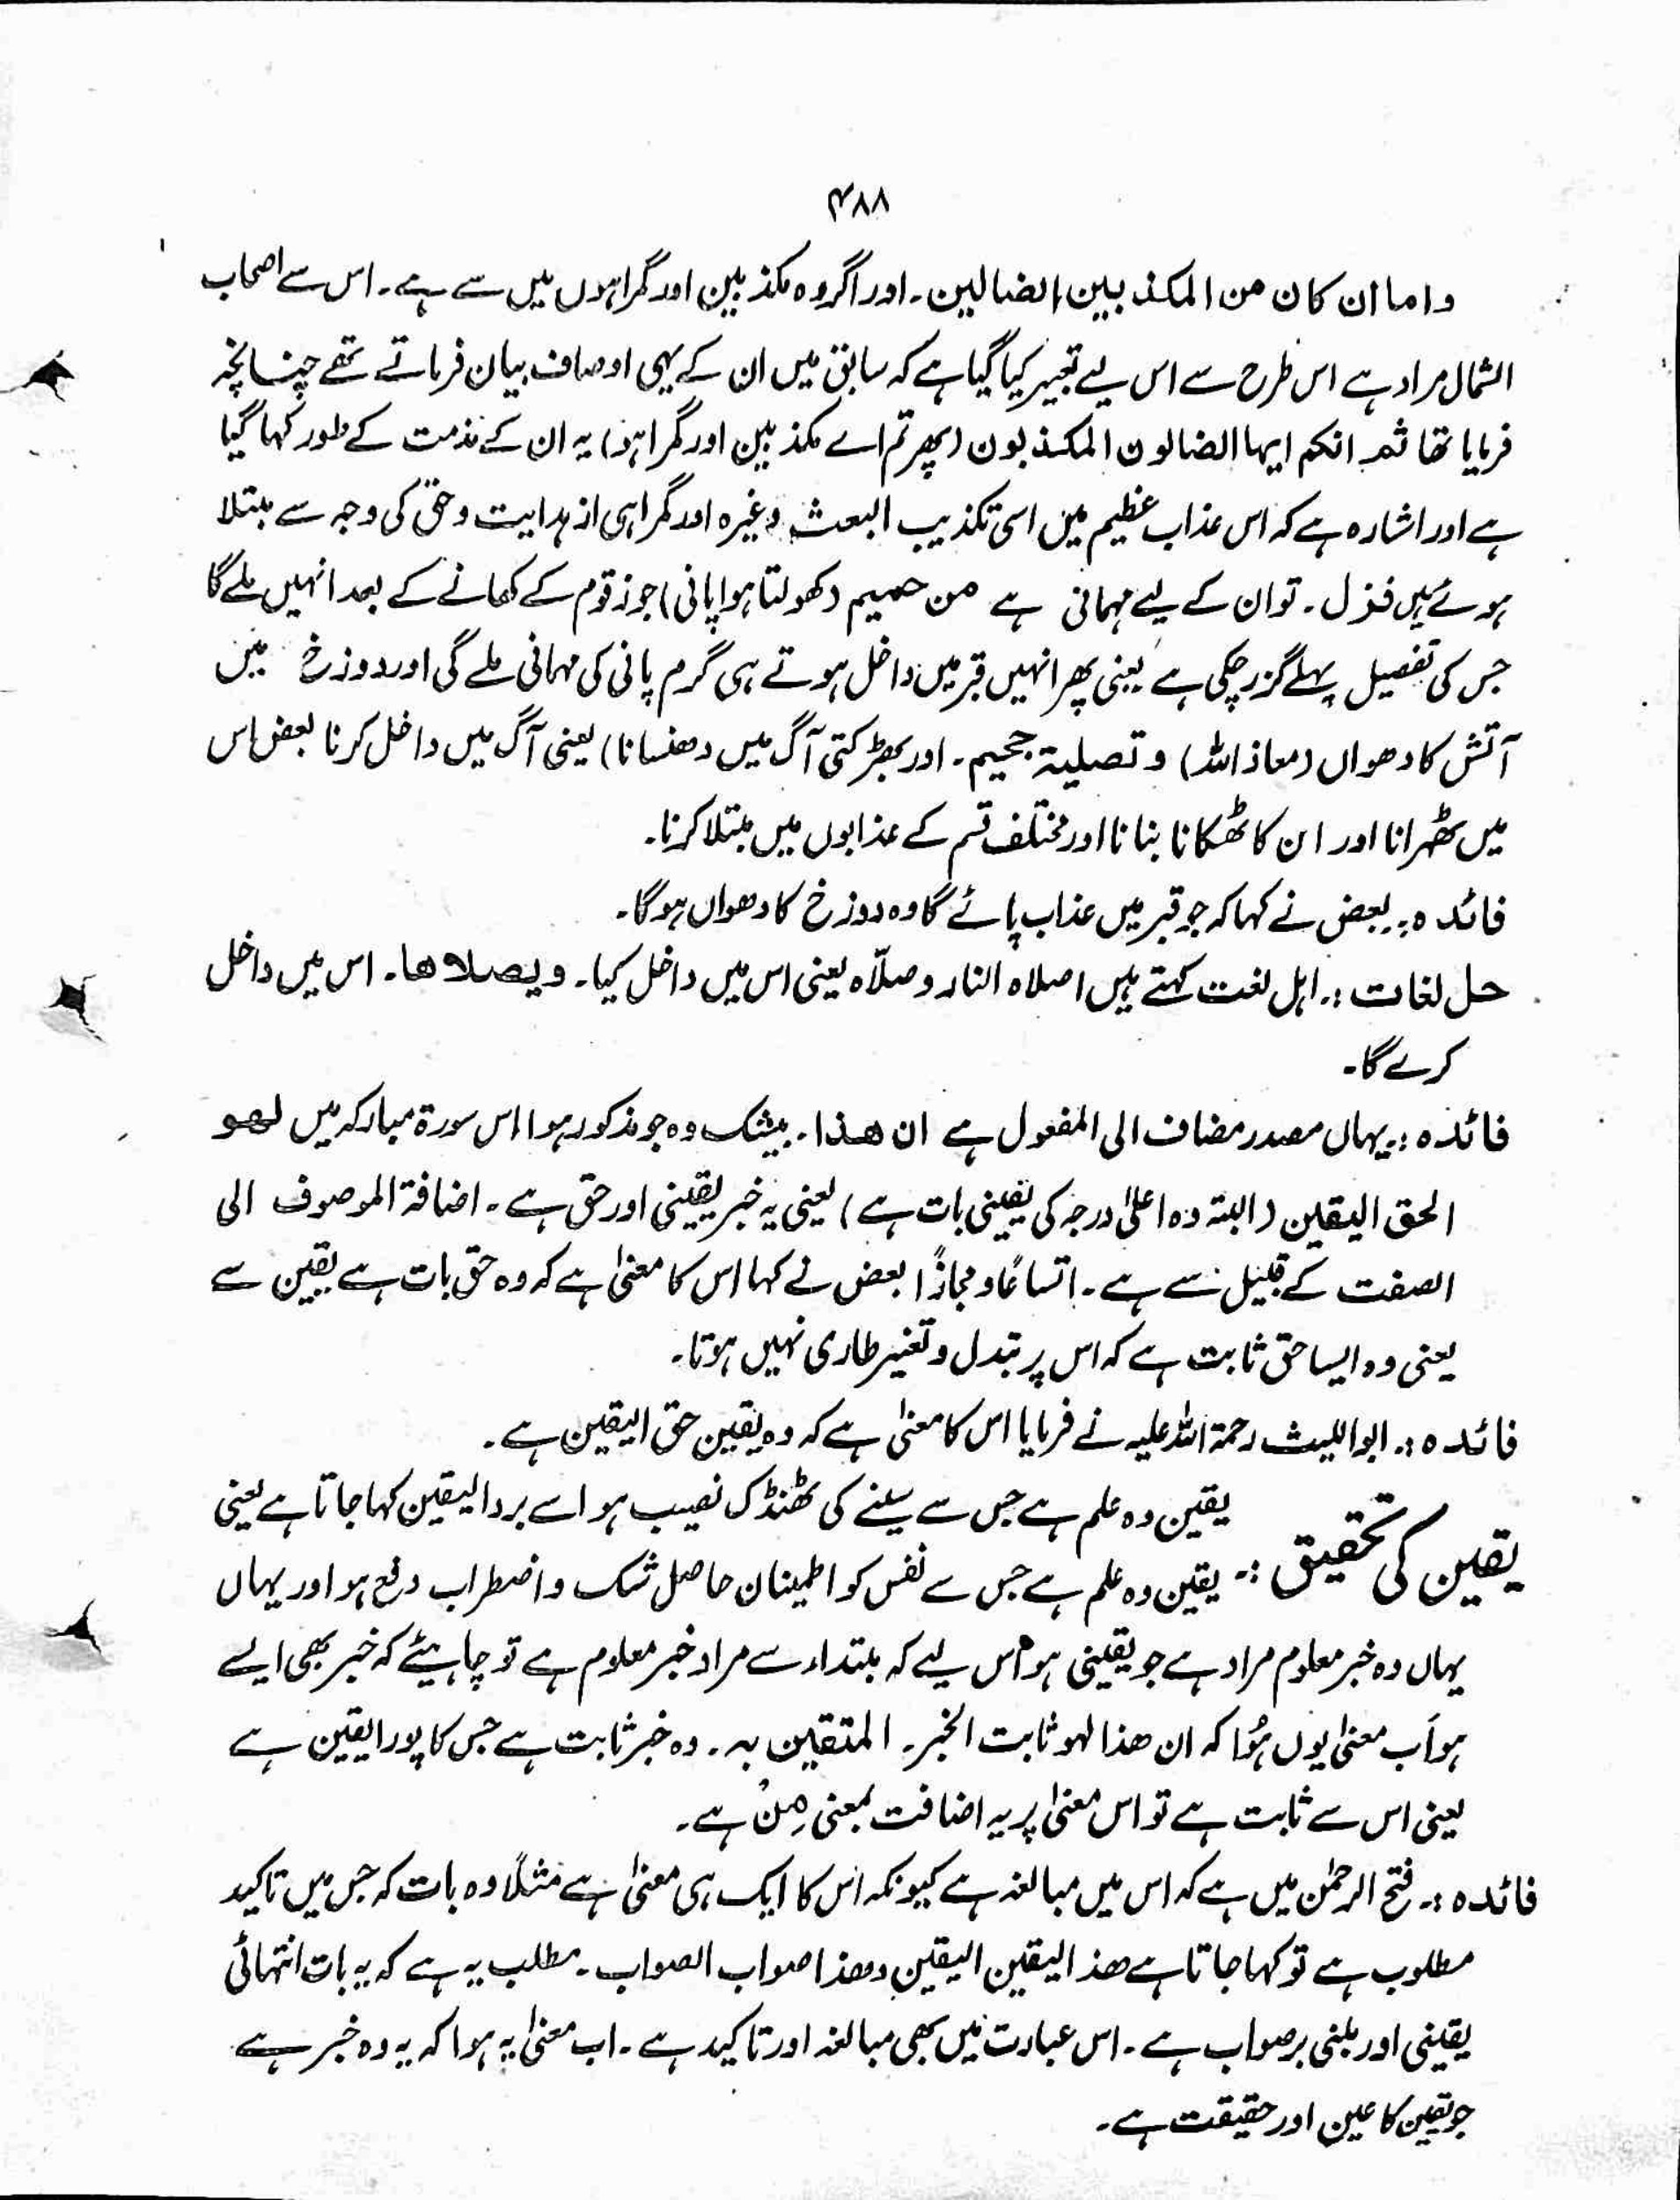 ۴۸۸
واما ان کان من المکذبین الضالین۔ اور اگر وہ مکذبین اور گمراہوں میں سے ہے۔ اس سے اصحاب
الشمال مراد ہے اس طرح سے اس لیے تعبیر کیا گیا ہے کہ سابق میں ان کے یہی اوصاف بیان فرمائے تھے چنانچہ
فرمایا تھا ثم انکم ایہا الضالون المکذبون (پھر تم اے مکذبین اور گمراہو) یہ ان کے مذمت کے طور کہا گیا
ہے اور اشارہ ہے کہ اس عذاب عظیم میں اسی تکذیب البعث وغیرہ اور گمراہی از ہدایت و حق کی وجہ سے مبتلا
ہوئے ہیں فنزل۔ تو ان کے لیے مہمانی ہے من حمیم (کھولتا ہوا پانی) جو زقوم کے کھانے کے بعد انہیں ملے گا
جس کی تفصیل پہلے گزر چکی ہے یعنی پھر انہیں قبر میں داخل ہوتے ہی گرم پانی کی مہمانی ملے گی اور دوزخ میں
آتش کا دھواں (معاذ اللہ) و تصلیۃ جحیم۔ اور بھڑکتی آگ میں دھنسانا) یعنی آگ میں داخل کرنا بعض اس
میں ٹھہرانا اور ان کا ٹھکانا بنانا اور مختلف قسم کے عذابوں میں مبتلا کرنا۔
فائدہ :۔ بعض نے کہا کہ جو قبر میں عذاب پائے گا وہ دوزخ کا دھواں ہوگا۔
حل لغات :۔ اہل لغت کہتے ہیں اصلاہ النار وصلّاہ یعنی اس میں داخل کیا۔ ویصلاھا۔ اس میں داخل
کرے گا۔
فائدہ :۔ یہاں مصدر مضاف الی المفعول ہے ان ھذا۔ بیشک وہ جو مذکور ہوا اس سورۃ مبارکہ میں لھو
الحق الیقین (البتہ وہ اعلیٰ درجہ کی یقینی بات ہے) یعنی یہ خبر یقینی اور حق ہے۔ اضافۃ الموصوف الی
الصفت کے قبیل سے ہے۔ اتساعًا و مجازًا بعض نے کہا اس کا معنیٰ ہے کہ وہ حق بات ہے یقین سے
یعنی وہ ایسا حق ثابت ہے کہ اس پر تبدل و تغیر طاری نہیں ہوتا۔
فائدہ :۔ ابو اللیث رحمۃ اللہ علیہ نے فرمایا اس کا معنیٰ ہے کہ وہ یقین حق الیقین ہے۔
یقین کی تحقیق :۔ یقین وہ علم ہے جس سے سینے کی ٹھنڈک نصیب ہو اسے برد الیقین کہا جاتا ہے یعنی
یقین وہ علم ہے جس سے نفس کو اطمینان حاصل شک و اضطراب دفع ہو اور یہاں
یہاں وہ خبر معلوم مراد ہے جو یقینی ہو اس لیے کہ مبتداء سے مراد خبر معلوم ہے تو چاہیئے کہ خبر بھی ایسے
ہو اَب معنیٰ یوں ہُوا کہ ان ھذا لھو ثابت الخبر۔ المتقین بہ۔ وہ خبر ثابت ہے جس کا پورا یقین ہے
یعنی اس سے ثابت ہے تو اس معنیٰ پر یہ اضافت بمعنی مِنْ ہے۔
فائدہ :۔ فتح الرحمٰن میں ہے کہ اس میں مبالغہ ہے کیونکہ اس کا ایک ہی معنیٰ ہے مثلاً وہ بات کہ جس میں تاکید
مطلوب ہے تو کہا جاتا ہے ھذ الیقین الیقین وھذا صواب الصواب۔ مطلب یہ ہے کہ یہ بات انتہائی
یقینی اور مبنی بر صواب ہے۔ اس عبارت میں بھی مبالغہ اور تاکید ہے۔ اب معنیٰ یہ ہوا کہ یہ وہ خبر ہے
جو یقین کا عین اور حقیقت ہے۔